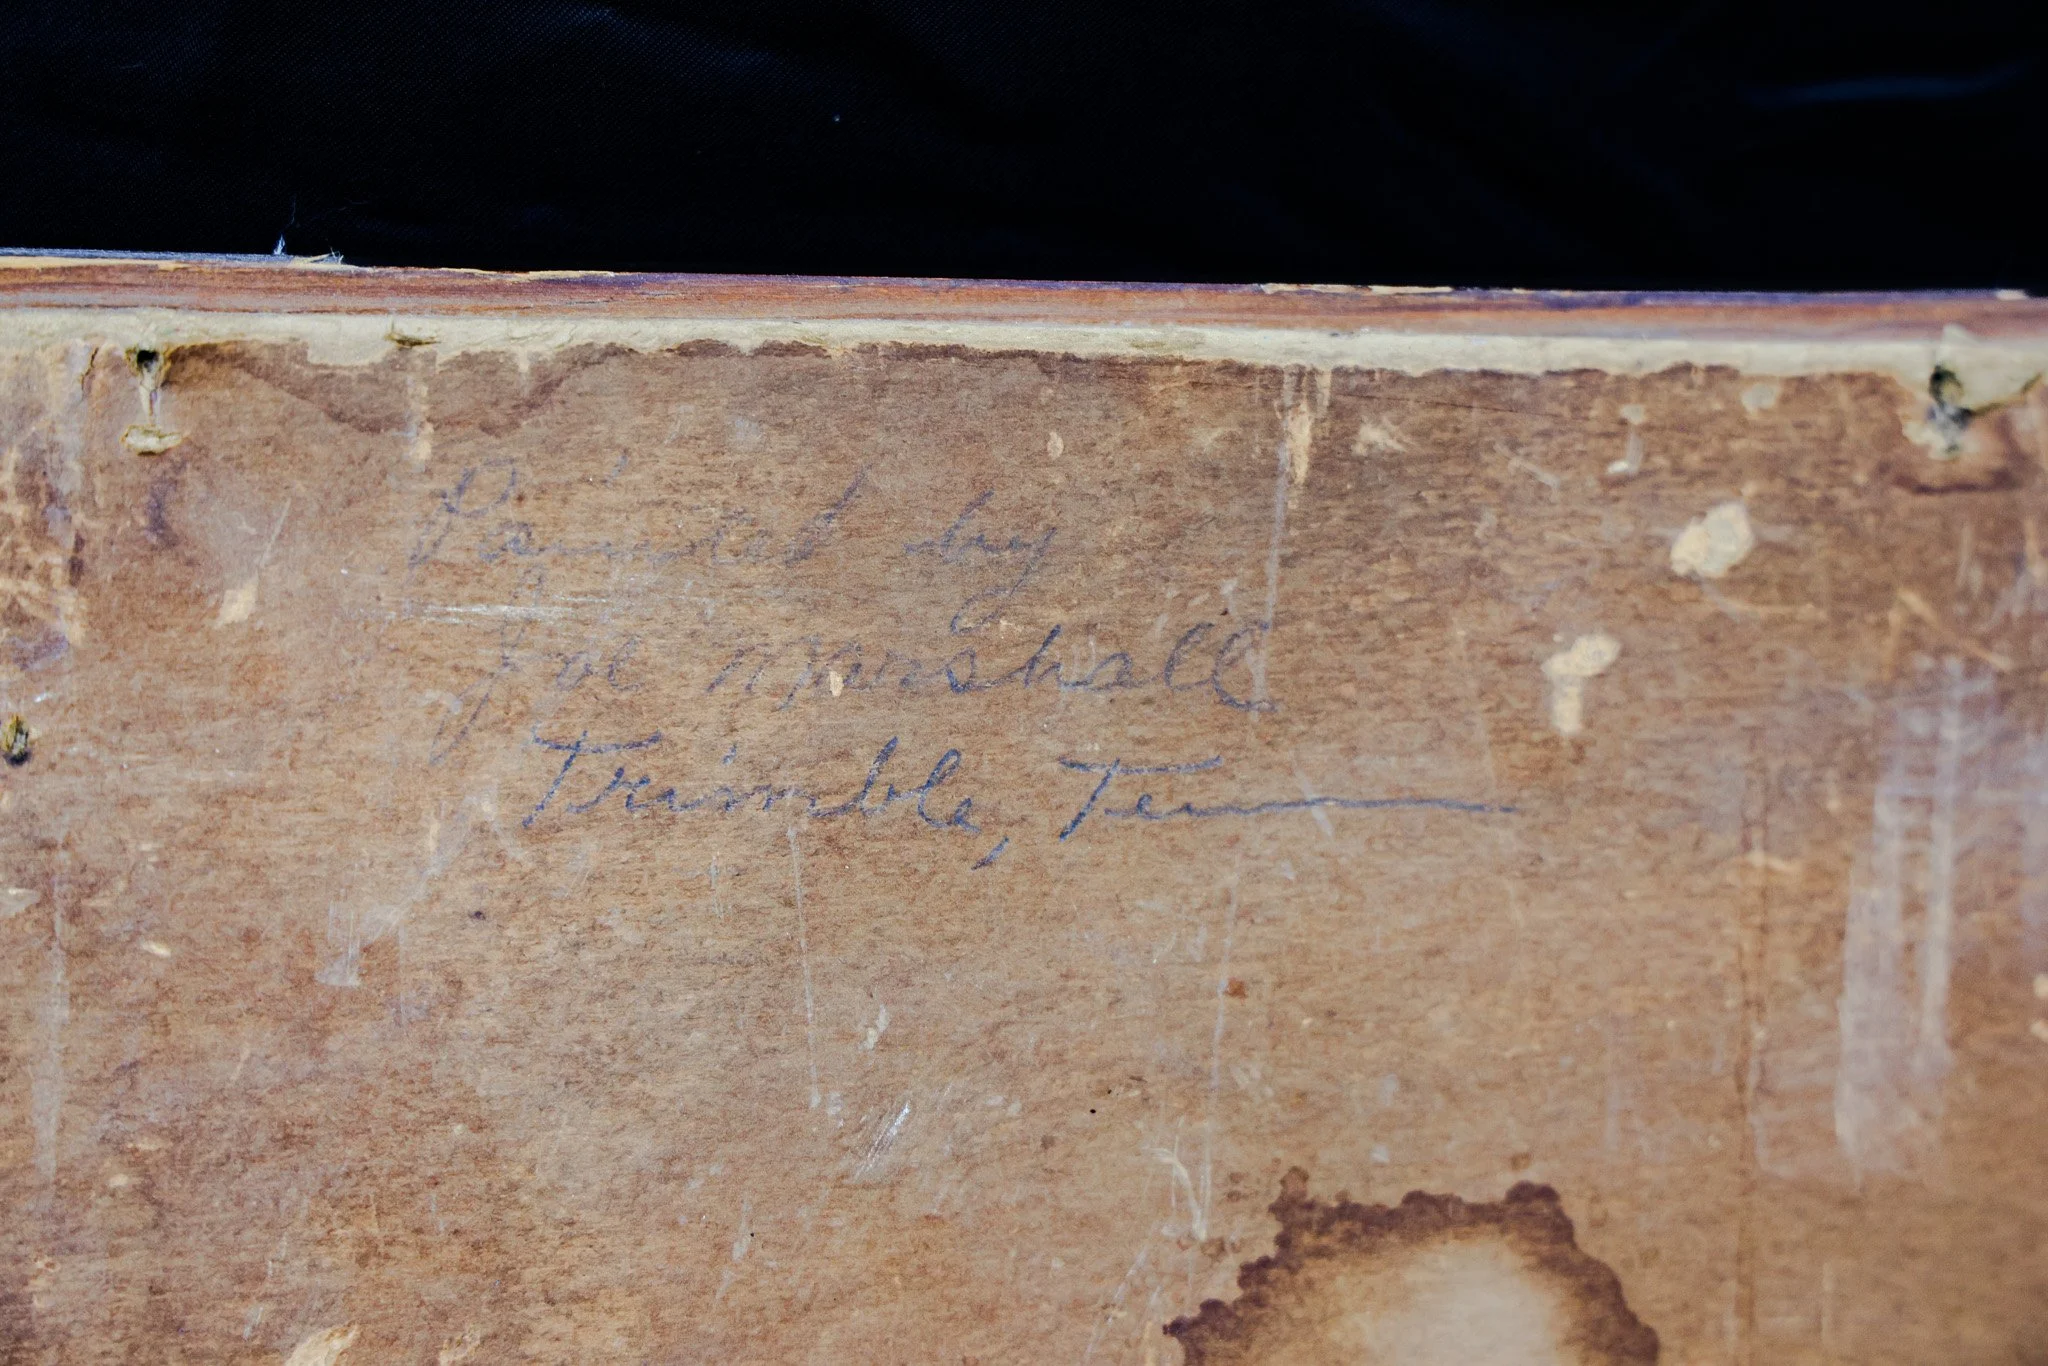 Painted by
Joe Marshall
Trimble, Tenn